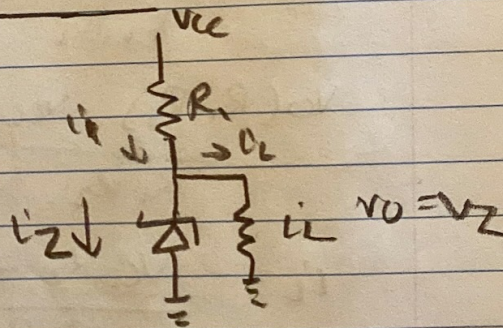 Vcc
R1
i1
iL
iz
iL
vo = Vz